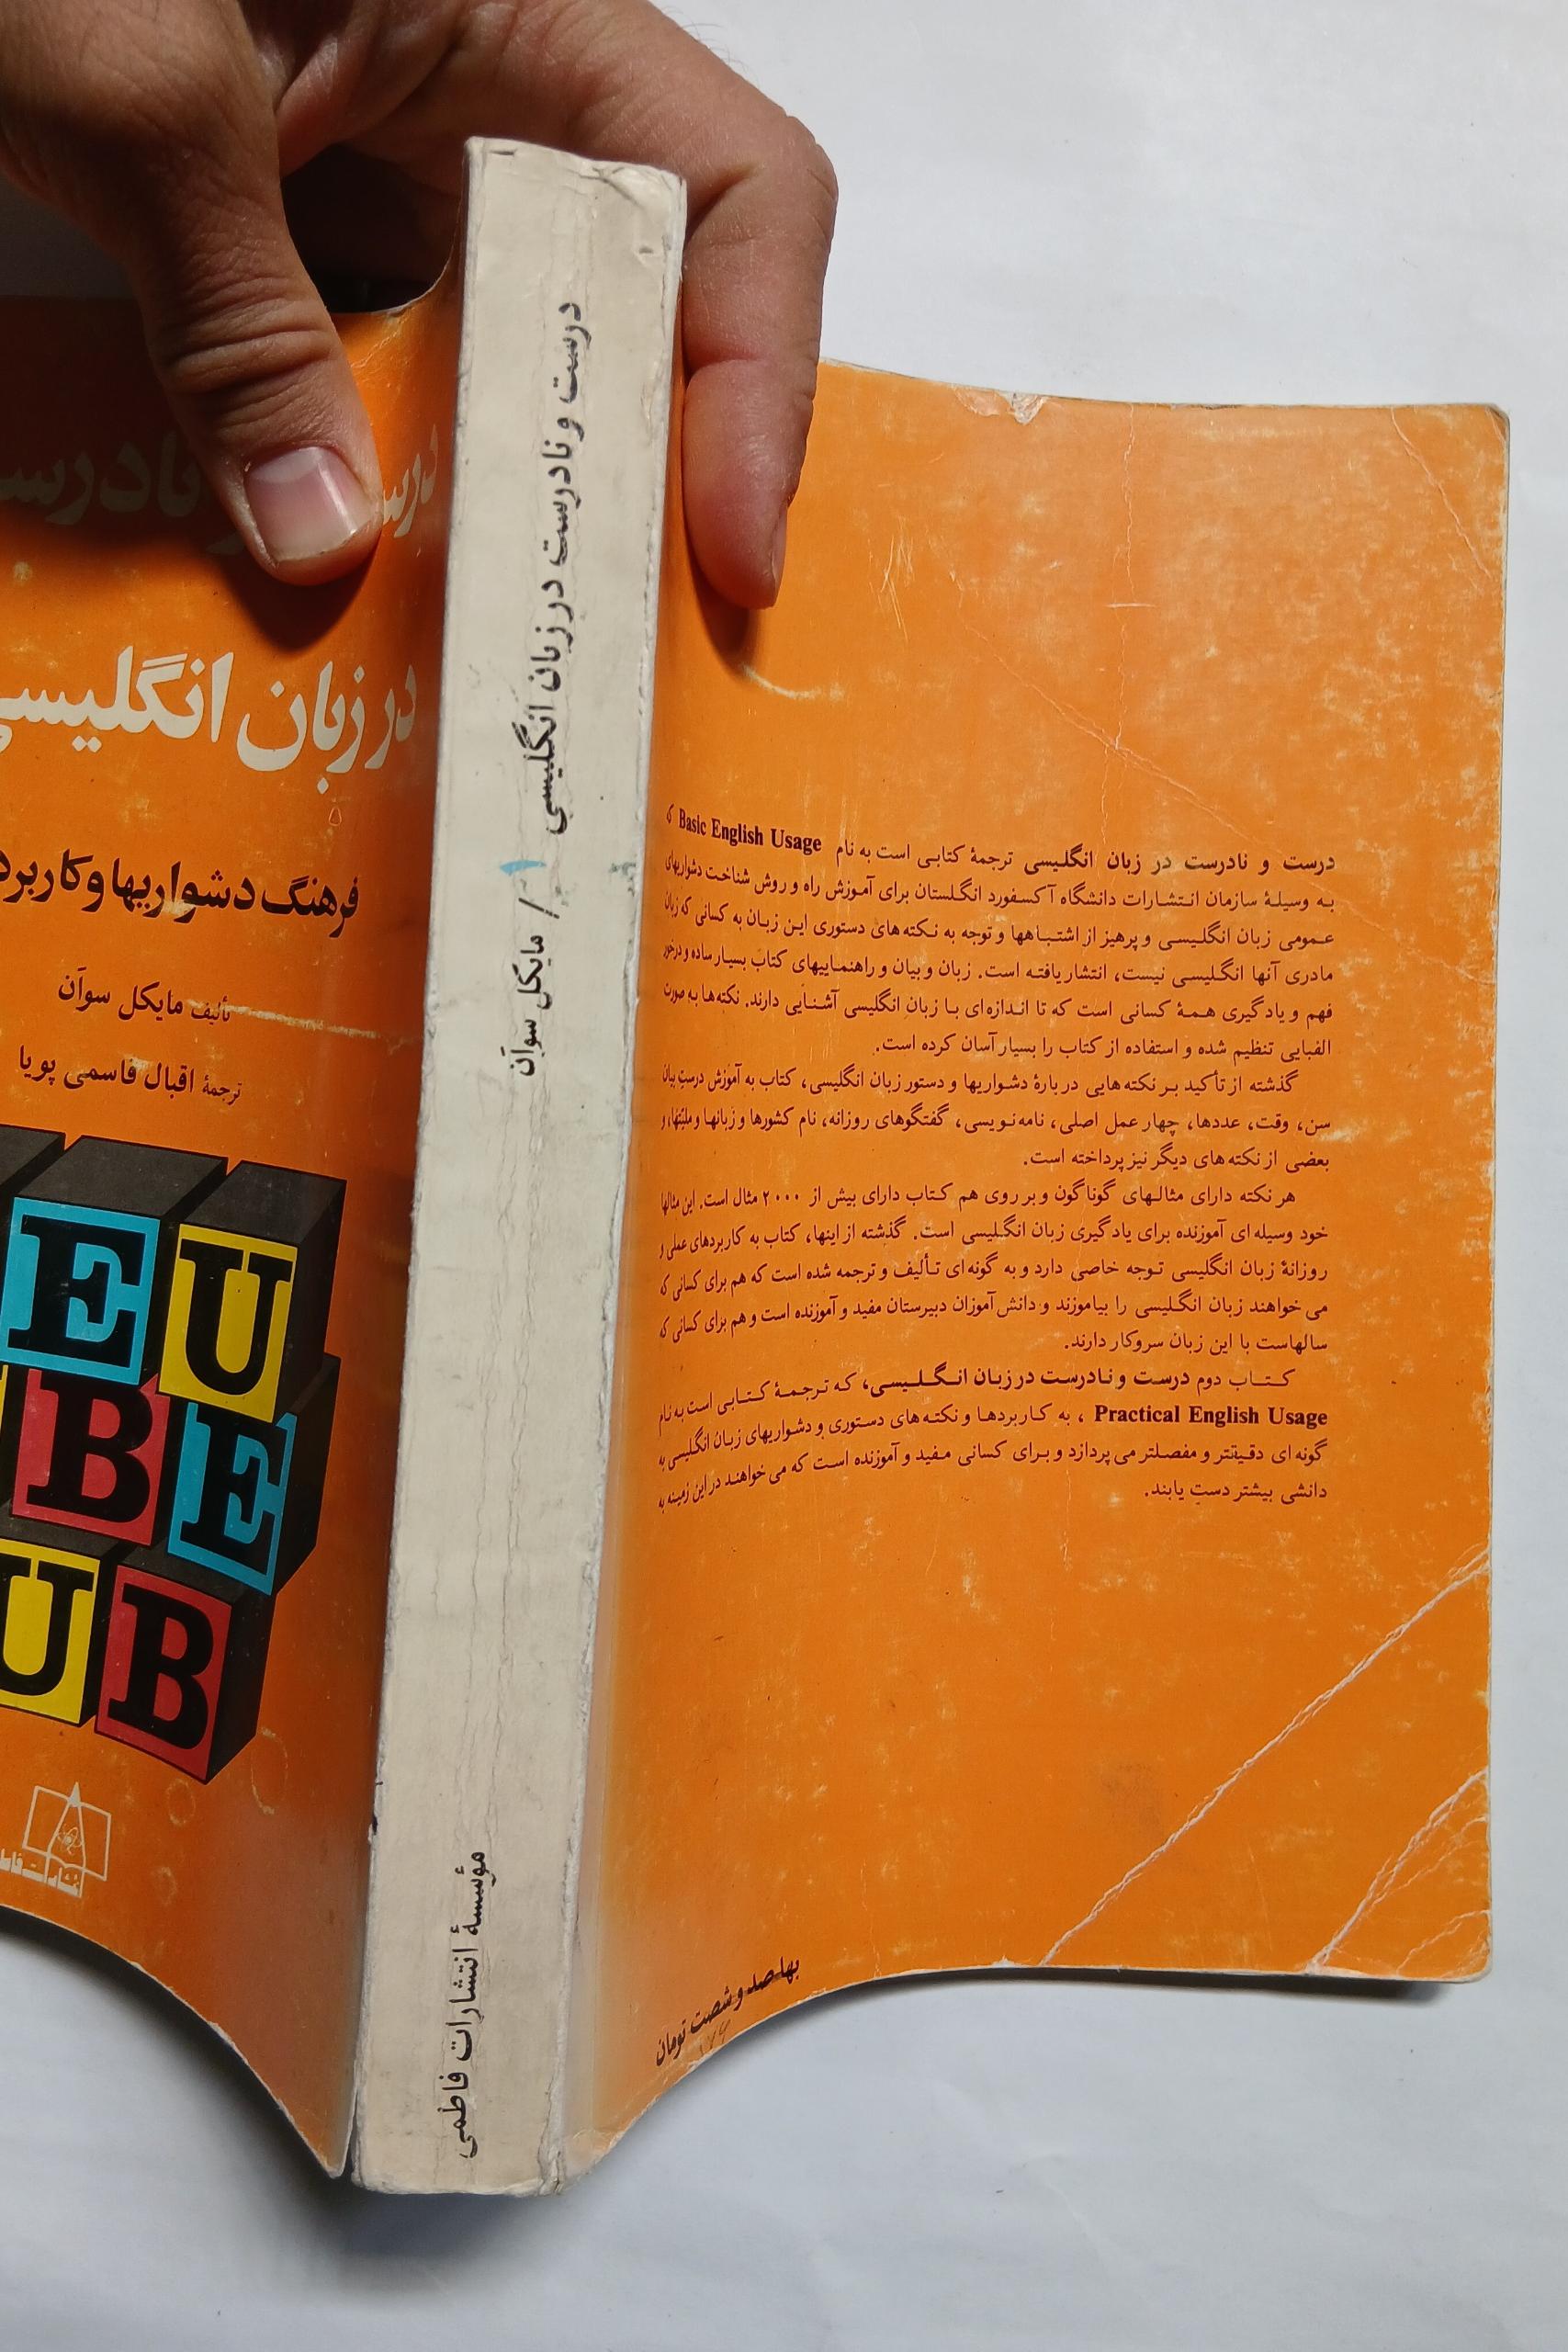 درست و نادرس
در زبان انگلیسی
فرهنگ دشواریها و کاربرد
تألیف مایکل سوآن
ترجمهٔ اقبال قاسمی پویا
E U
B E
U B
درست و نادرست در زبان انگلیسی ۱ / مایکل سوآن
مؤسسهٔ انتشارات فاطمی
درست و نادرست در زبان انگلیسی ترجمهٔ کتابی است به نام Basic English Usage که
به وسیلهٔ سازمان انتشارات دانشگاه آکسفورد انگلستان برای آموزش راه و روش شناخت دشواریهای
عمومی زبان انگلیسی و پرهیز از اشتباهها و توجه به نکته‌های دستوری این زبان به کسانی که زبان
مادری آنها انگلیسی نیست، انتشار یافته است. زبان و بیان و راهنماییهای کتاب بسیار ساده و درخور
فهم و یادگیری همهٔ کسانی است که تا اندازه‌ای با زبان انگلیسی آشنایی دارند. نکته‌ها به صورت
الفبایی تنظیم شده و استفاده از کتاب را بسیار آسان کرده است.
گذشته از تأکید بر نکته‌هایی دربارهٔ دشواریها و دستور زبان انگلیسی، کتاب به آموزش درست بیان
سن، وقت، عددها، چهار عمل اصلی، نامه‌نویسی، گفتگوهای روزانه، نام کشورها و زبانها و ملیتها، و
بعضی از نکته‌های دیگر نیز پرداخته است.
هر نکته دارای مثالهای گوناگون و بر روی هم کتاب دارای بیش از ۲۰۰۰ مثال است. این مثالها
خود وسیله‌ای آموزنده برای یادگیری زبان انگلیسی است. گذشته از اینها، کتاب به کاربردهای عملی و
روزانهٔ زبان انگلیسی توجه خاصی دارد و به گونه‌ای تألیف و ترجمه شده است که هم برای کسانی که
می‌خواهند زبان انگلیسی را بیاموزند و دانش‌آموزان دبیرستان مفید و آموزنده است و هم برای کسانی که
سالهاست با این زبان سروکار دارند.
کتاب دوم درست و نادرست در زبان انگلیسی، که ترجمهٔ کتابی است به نام
Practical English Usage ، به کاربردها و نکته‌های دستوری و دشواریهای زبان انگلیسی به
گونه‌ای دقیقتر و مفصلتر می‌پردازد و برای کسانی مفید و آموزنده است که می‌خواهند در این زمینه به
دانشی بیشتر دست یابند.
بها صد و شصت تومان